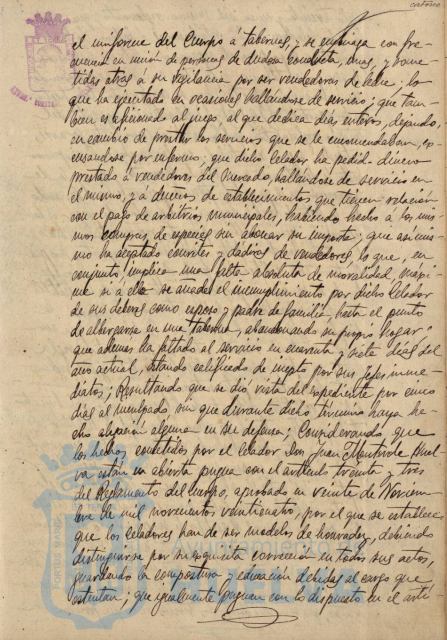 catorce
el uniforme del Cuerpo á tabernas, y se embriaga con fre-
cuencia en unión de personas de dudosa conducta, unas, y some-
tidas otras á su vigilancia por ser vendedoras de leche; lo
que ha ejecutado en ocasiones hallándose de servicio; que tam-
bien es aficionado al juego, al que dedica dias enteros, dejando,
en cambio de prestar los servicios que se le encomendaban, ex-
cusandose por enfermo; que dicho Celador ha pedido dinero
prestado á vendedores del Mercado, hallándose de servicio en
el mismo, y á dueños de establecimientos que tienen relación
con el pago de arbitrios municipales, haciendo hecho á los mis-
mos compras de especies sin abonar su importe; que asimis-
mo ha aceptado convites y dádivas de vendedores lo que, en
conjunto, implica una falta absoluta de moralidad máxi-
me si á ello se añade el incumplimiento por dicho Celador
de sus deberes como esposo y padre de familia, hasta el punto
de albergarse en una taberna, abandonando su propio hogar
que ademas ha faltado al servicio en cuarenta y siete dias del
año actual, estando calificado de inepto por sus jefes inme-
diatos; Resultando que se dió vista del expediente por cinco
dias al inculpado sin que durante dicho término haya he-
cho alegación alguna en su defensa; Considerando que
los hechos cometidos por el Celador Don Juan
están en abierta pugna con el artículo treinta y tres
del Reglamento del Cuerpo, aprobado en veinte de Noviem-
bre de mil novecientos veinticuatro, por el que se establece
que los Celadores han de ser modelos de honradez, debiendo
distinguirse por su exquisita corrección en todos sus actos,
guardando la compostura y educación debidas al cargo que
ostentan; que igualmente pugnan con lo dispuesto en el artí-